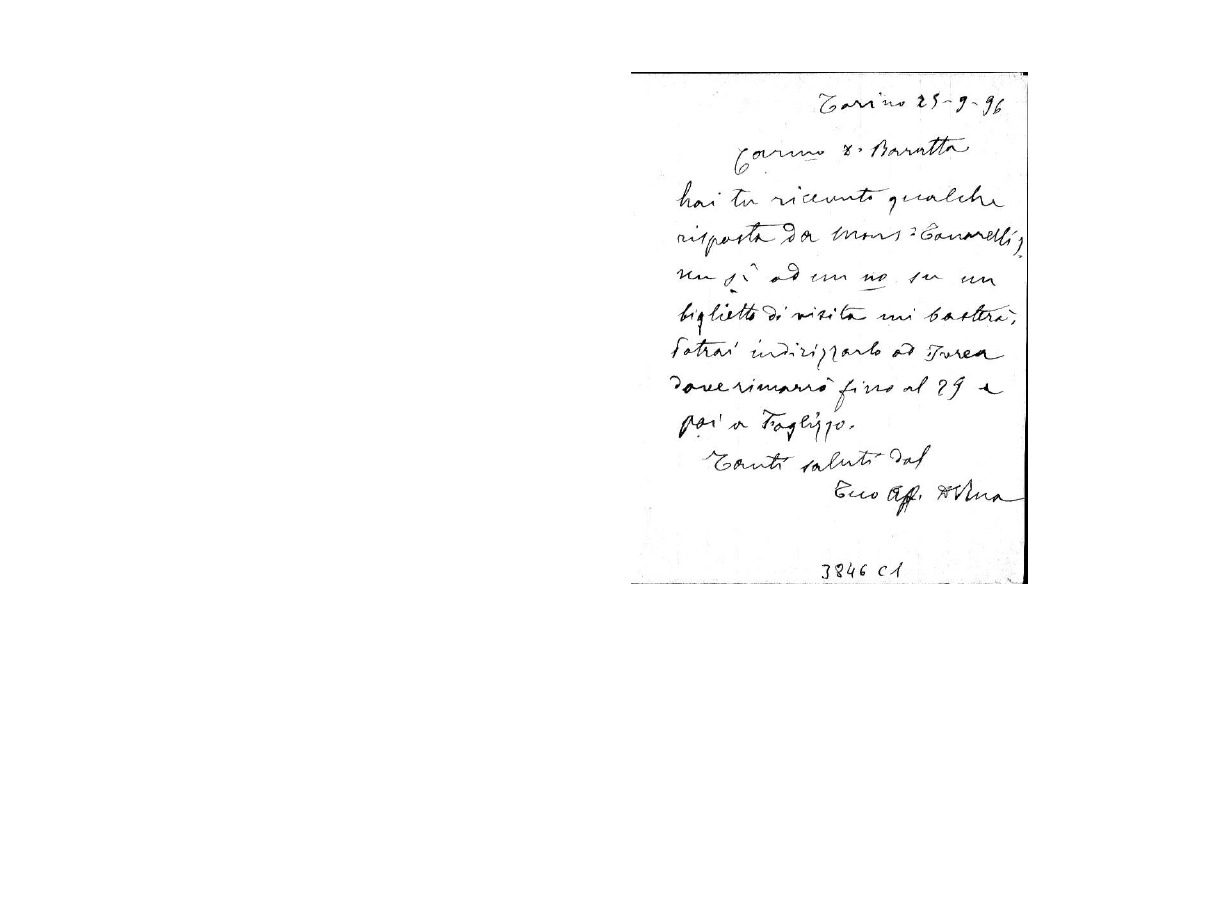 Torino 25-9-96
Carmo D. Baratta
hai tu ricevuto qualche
risposta da Mons:
un sì od un no su un
biglietto di visita mi basterà.
Potrai indirizzarlo ad Ivrea
dove rimarrò fino al 29 e
poi a Foglizzo.
Tanti saluti dal
Tuo aff. D Rua
3846 C1